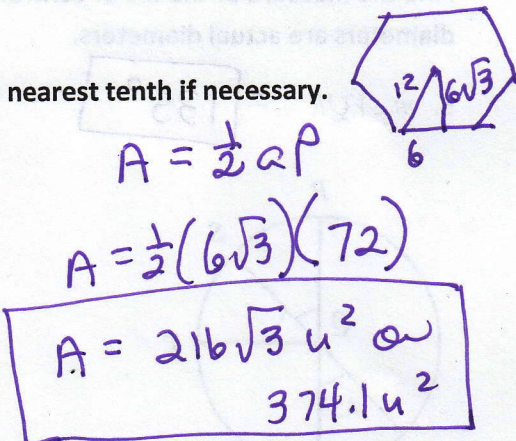 nearest tenth if necessary.
12 6√3
6
A = ½ a P
A = ½(6√3)(72)
A = 216√3 u² or
374.1 u²